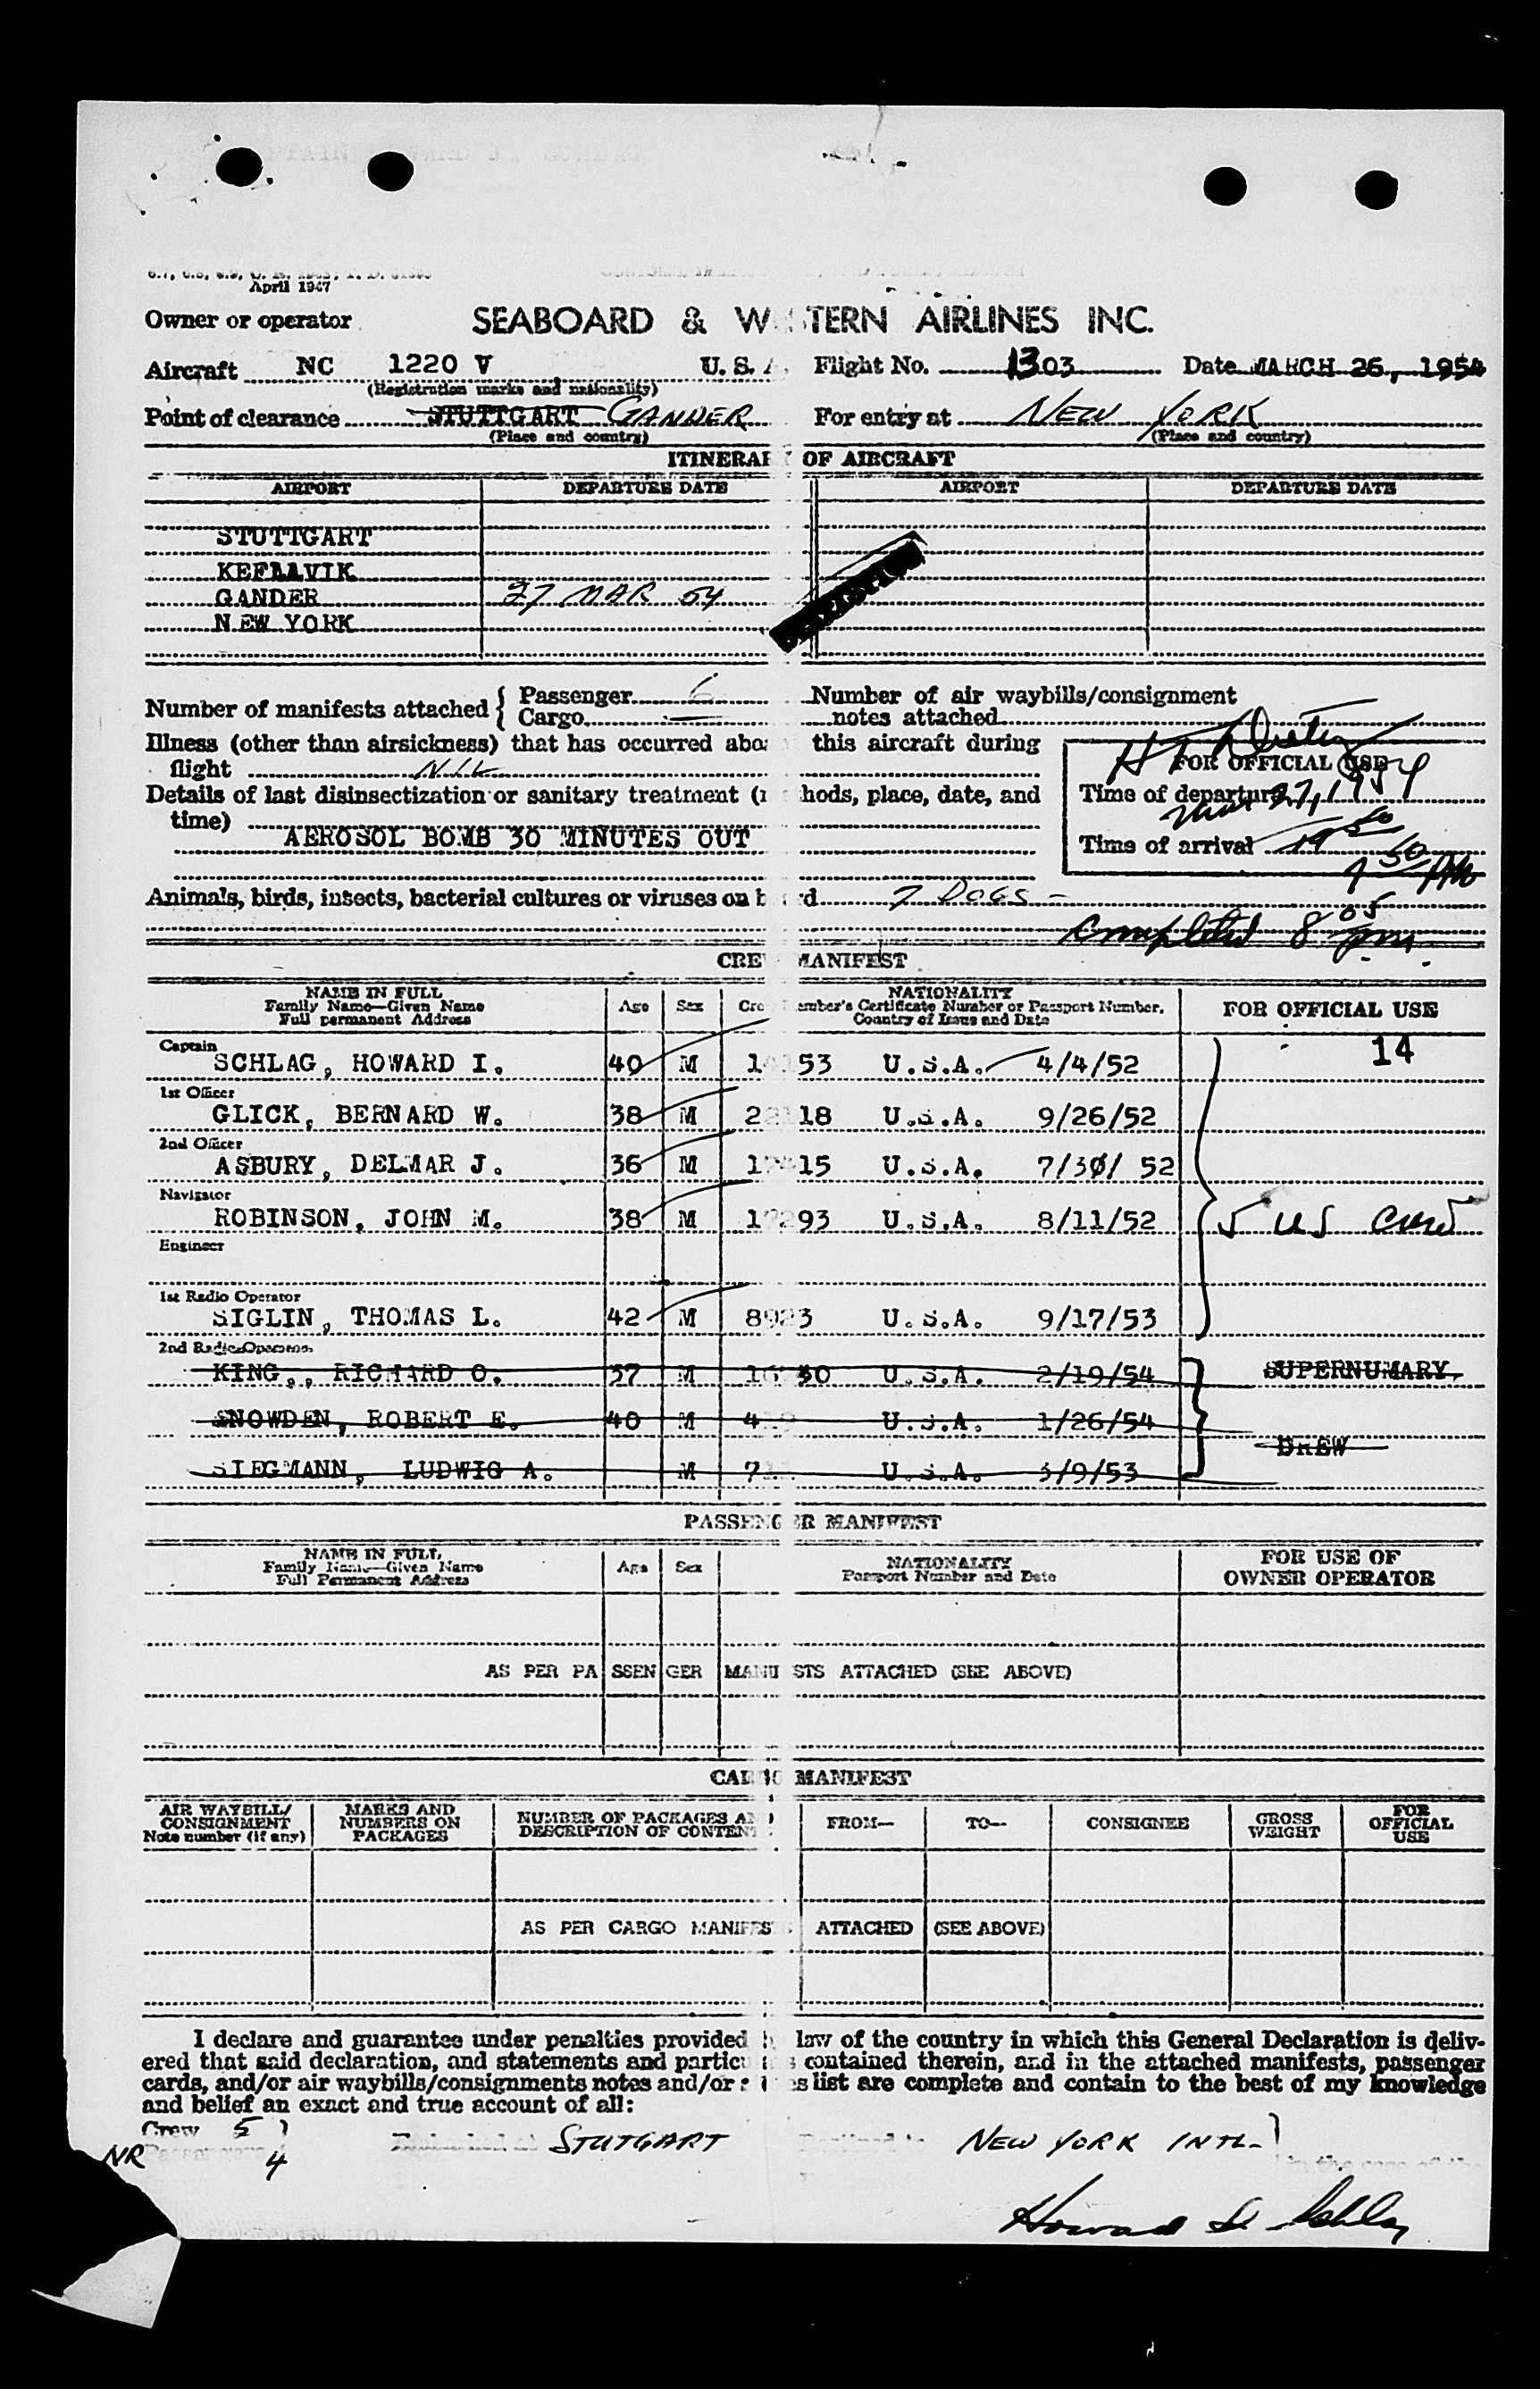 April 1947
Owner or operator SEABOARD & WESTERN AIRLINES INC.
Aircraft NC 1220 V U. S. A. Flight No. 1303 Date MARCH 26, 1954
(Registration marks and nationality)
Point of clearance STUTTGART GANDER For entry at NEW YORK
(Place and country) (Place and country)
ITINERARY OF AIRCRAFT
AIRPORT DEPARTURE DATE AIRPORT DEPARTURE DATE
STUTTGART
KEFLAVIK
GANDER 27 MAR 54
NEW YORK
Number of manifests attached { Passenger 6
Cargo —
Number of air waybills/consignment
notes attached
Illness (other than airsickness) that has occurred aboard this aircraft during
flight NIL
Details of last disinsectization or sanitary treatment (methods, place, date, and
time)
AEROSOL BOMB 30 MINUTES OUT
FOR OFFICIAL USE
Time of departure
Mar 27, 1954
Time of arrival 19 50
7 50 PM
Animals, birds, insects, bacterial cultures or viruses on board 7 DOGS –
Completed 8 05 pm.
CREW MANIFEST
NAME IN FULL
Family Name—Given Name
Full permanent Address
Age Sex
NATIONALITY
Crew Member's Certificate Number or Passport Number,
Country of Issue and Date
FOR OFFICIAL USE
14
Captain
SCHLAG, HOWARD I. 40 M 1 153 U.S.A. 4/4/52
1st Officer
GLICK, BERNARD W. 38 M 22118 U.S.A. 9/26/52
2nd Officer
ASBURY, DELMAR J. 36 M 17 15 U.S.A. 7/30/ 52
Navigator
ROBINSON, JOHN M. 38 M 17293 U.S.A. 8/11/52
5 US Crew
Engineer
1st Radio Operator
SIGLIN, THOMAS L. 42 M 8923 U.S.A. 9/17/53
2nd Radio Operator
KING,, RICHARD O. 37 M U.S.A. 2/19/54 SUPERNUMARY
SNOWDEN, ROBERT E. 40 M 4 U.S.A. 1/26/54
DREW
SIEGMANN, LUDWIG A. M 7 U.S.A. 3/9/53
PASSENGER MANIFEST
NAME IN FULL
Family Name—Given Name
Full Permanent Address
Age Sex
NATIONALITY
Passport Number and Date
FOR USE OF
OWNER OPERATOR
AS PER PASSENGER MANIFESTS ATTACHED (SEE ABOVE)
CARGO MANIFEST
AIR WAYBILL/
CONSIGNMENT
Note number (if any)
MARKS AND
NUMBERS ON
PACKAGES
NUMBER OF PACKAGES AND
DESCRIPTION OF CONTENTS
FROM— TO— CONSIGNEE
GROSS
WEIGHT
FOR
OFFICIAL
USE
AS PER CARGO MANIFESTS ATTACHED (SEE ABOVE)
I declare and guarantee under penalties provided by law of the country in which this General Declaration is deliv-
ered that said declaration, and statements and particulars contained therein, and in the attached manifests, passenger
cards, and/or air waybills/consignments notes and/or stores list are complete and contain to the best of my knowledge
and belief an exact and true account of all:
Crew 5 }
NR Passengers 4 Embarked at STUTGART Destined to NEW YORK INTL. }